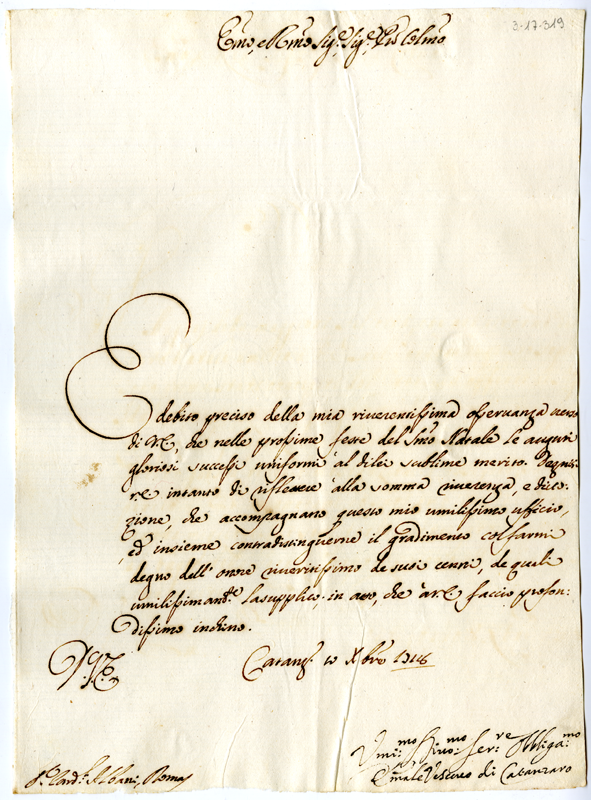 3-17-319
Em̃o, e Rmõ Sig.r Sig.r Prõn Colmõ
E debito preciso della mia riverentissima osservanza verso
di V.E., che nelle prossime feste del Smõ Natale le auguri
gloriosi successi uniformi al di lei sublime merito. Degnisi
V.E. intanto di riflettere alla somma riverenza, e divo-
zione, che accompagnano questo mio umilissimo ufficio,
ed insieme contradistinguerne il gradimento col farmi
degno dell' onore riveritissimo de suoi cenni, de quali
umilissimam.te la supplico; in atto, che a V.E. faccio profon:
dissimo inchino.
Catanz.o Xbre
Umi:mo Divo:mo Ser:re Obliga:mo
Vescovo di Catanzaro
S.r Card.l Albani, Roma